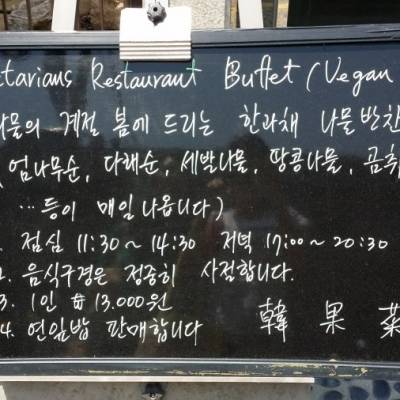 tarians Restaurant Buffet (Vegan
나물의 계절 봄에 드리는 한과채 나물반찬
(엄나무순, 다래순, 세발나물, 땅콩나물, 곰취
…등이 매일 나옵니다)
1. 점심 11:30~14:30 저녁 17:00~20:30
2. 음식구경은 정중히 사절합니다.
3. 1인 ₩13.000원
4. 연잎밥 판매합니다
韓果菜